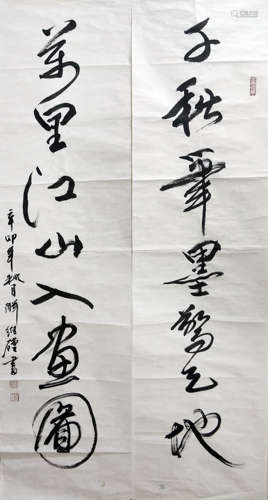 千秋笔墨惊天地
萬里江山入画圖
辛卯年秋月